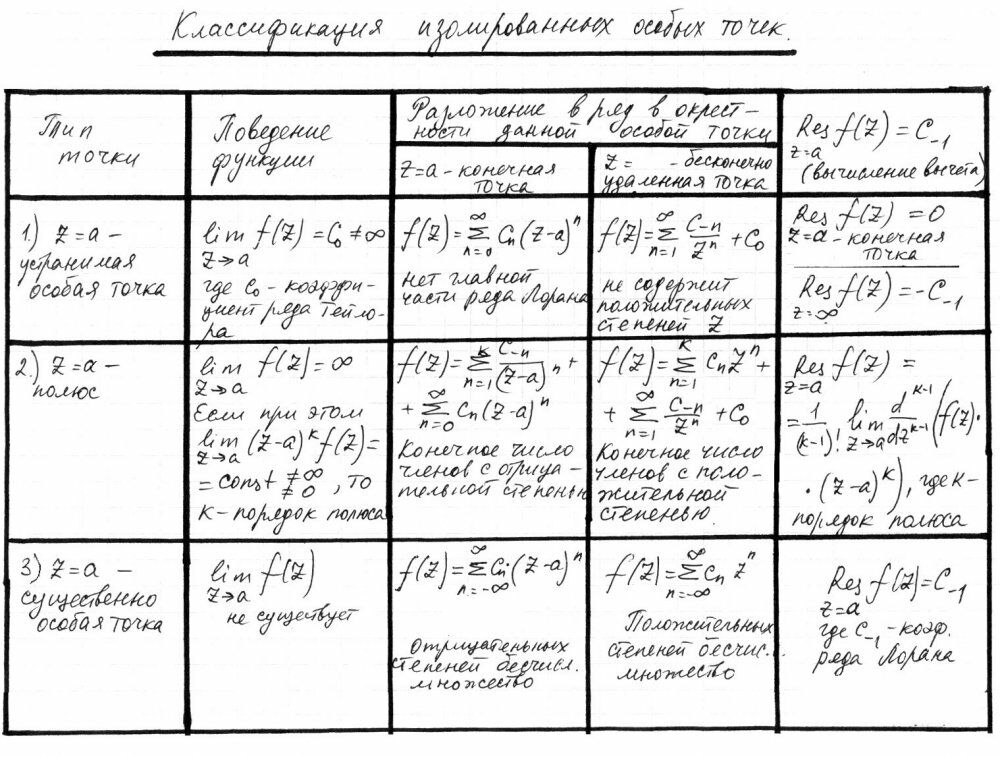 Классификация изолированных особых точек.
Тип
точки
Поведение
функции
Разложение в ряд в окрест-
ности данной особой точки
z=a - конечная
точка
z= - бесконечно
удаленная точка
Res f(z) = C₋₁
z=a
(вычисление вычета)
1.) z=a –
устранимая
особая точка
lim f(z) = C₀ ≠ ∞
z→a
где C₀ - коэффи-
циент ряда Тейло-
ра
f(z) = ∑_{n=0}^{∞} Cₙ(z-a)ⁿ
нет главной
части ряда Лорана
f(z) = ∑_{n=1}^{∞} C₋ₙ/zⁿ + C₀
не содержит
положительных
степеней z
Res f(z) = 0
z=a - конечная
точка
Res f(z) = -C₋₁
z=∞
2.) z=a –
полюс
lim f(z) = ∞
z→a
Если при этом
lim (z-a)ᵏ f(z) =
z→a
= const ≠∞ ≠0, то
k - порядок полюса
f(z) = ∑_{n=1}^{k} C₋ₙ/(z-a)ⁿ +
+ ∑_{n=0}^{∞} Cₙ(z-a)ⁿ
Конечное число
членов с отрица-
тельной степенью
f(z) = ∑_{n=1}^{k} Cₙzⁿ +
+ ∑_{n=1}^{∞} C₋ₙ/zⁿ + C₀
Конечное число
членов с поло-
жительной
степенью.
Res f(z) =
z=a
= 1/(k-1)! lim_{z→a} d^{k-1}/dz^{k-1} (f(z)·
·(z-a)ᵏ), где k-
порядок полюса
3) z=a –
существенно
особая точка
lim f(z)
z→a
не существует
f(z) = ∑_{n=-∞}^{∞} Cₙ·(z-a)ⁿ
Отрицательных
степеней бесчисл.
множество
f(z) = ∑_{n=-∞}^{∞} Cₙ zⁿ
Положительных
степеней бесчис..
множество
Res f(z) = C₋₁
z=a
где C₋₁ - коэф.
ряда Лорана